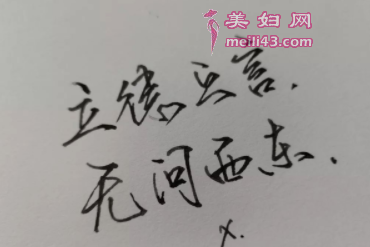 美妇网
meili43.com
立德立言.
无问西东.
x.